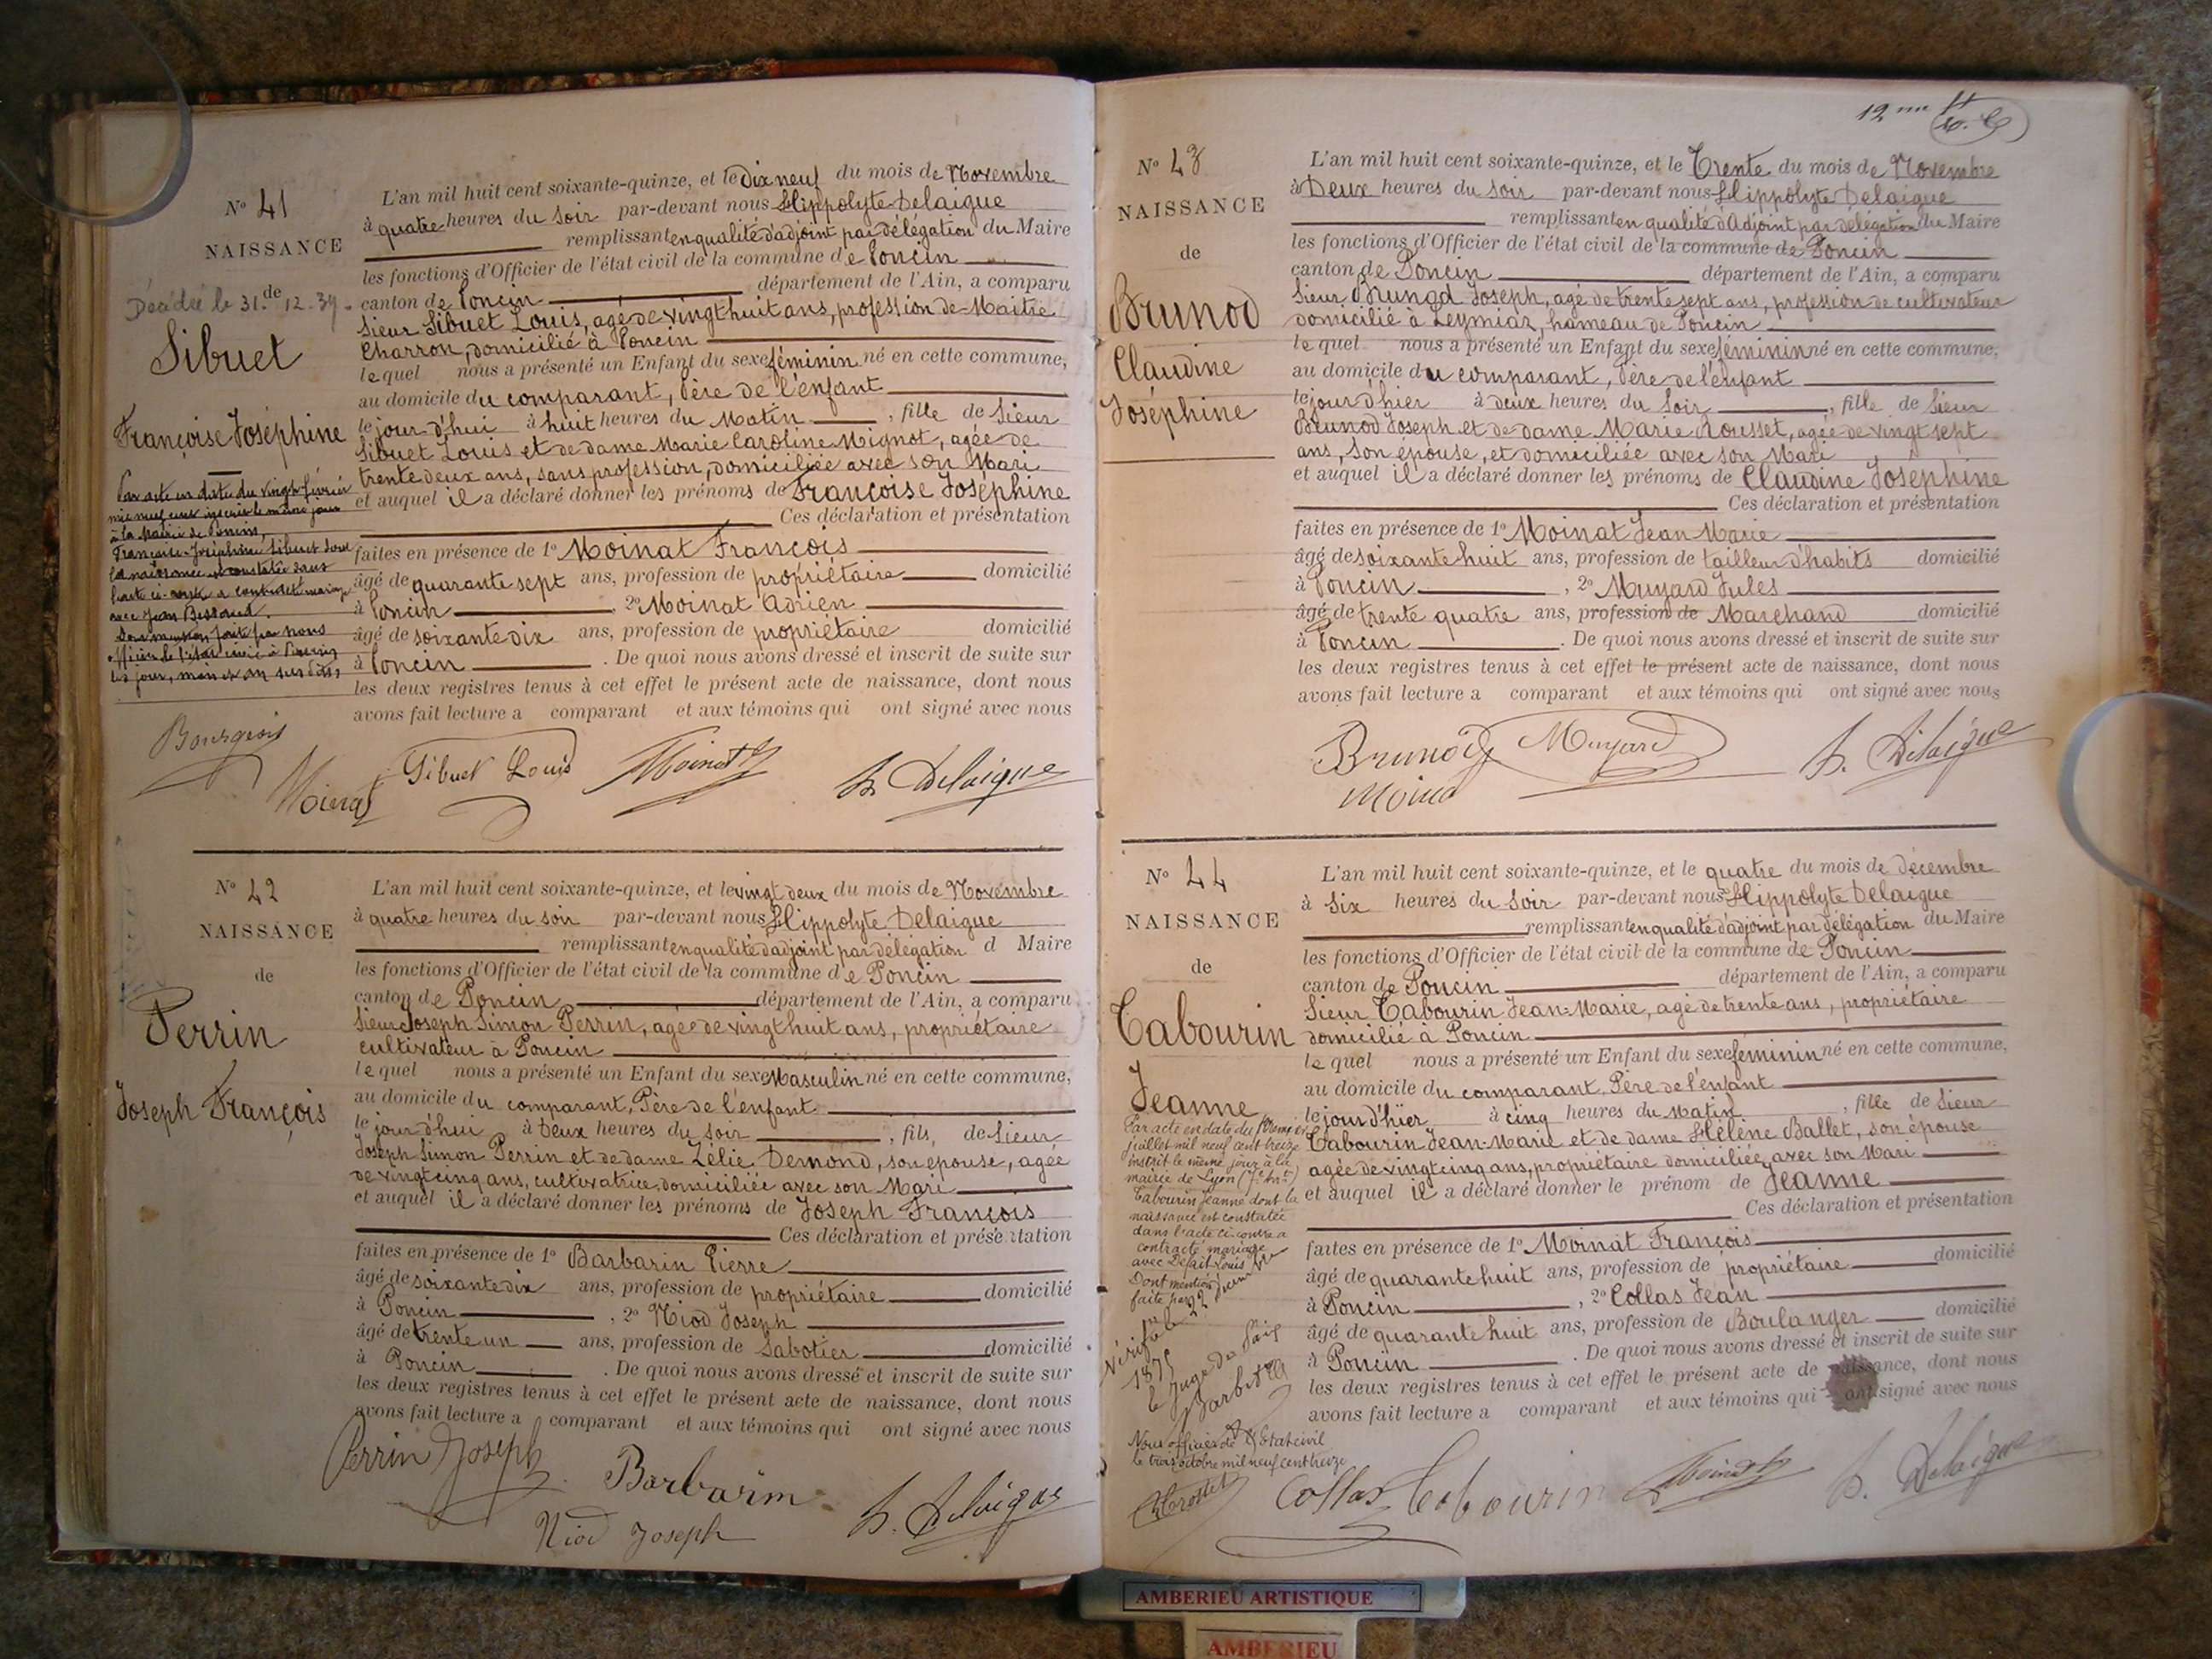 N° 41
NAISSANCE
Décédée le 31. 12. 39.
Sibuet
Françoise Joséphine
Par acte en date du vingt février
mil neuf cent inscrit le même jour
à la Mairie de Poncin,
Françoise-Joséphine Sibuet dont
la naissance est constatée dans
l'acte ci-contre a contracté mariage
avec Jean
Dont mention faite par nous
officier de l'état civil à Poncin
les jour, mois et an susdits,
L'an mil huit cent soixante-quinze, et le dix neuf du mois de Novembre
à quatre heures du Soir par-devant nous Hippolyte Delaigue
remplissant en qualité d'adjoint par délégation du Maire
les fonctions d'Officier de l'état civil de la commune de Poncin
canton de Poncin département de l'Ain, a comparu
Sieur Sibuet Louis, agé de vingt huit ans, profession de Maitre
Charron, domicilié à Poncin
lequel nous a présenté un Enfant du sexe féminin né en cette commune,
au domicile du comparant, Père de l'enfant
le jour d'hui à huit heures du Matin, fille de Sieur
Sibuet Louis et de dame Marie Caroline Mignot, agée de
trente deux ans, sans profession, domiciliée avec son Mari
et auquel il a déclaré donner les prénoms de Françoise Joséphine
Ces déclaration et présentation
faites en présence de 1° Moinat François
âgé de quarante sept ans, profession de propriétaire domicilié
à Poncin, 2° Moinat Adrien
âgé de soixante dix ans, profession de propriétaire domicilié
à Poncin. De quoi nous avons dressé et inscrit de suite sur
les deux registres tenus à cet effet le présent acte de naissance, dont nous
avons fait lecture a comparant et aux témoins qui ont signé avec nous
Bourgeois
Moinat Sibuet Louis Moinat h. Delaigue
N° 42
NAISSANCE
de
Perrin
Joseph François
L'an mil huit cent soixante-quinze, et le vingt deux du mois de Novembre
à quatre heures du soir par-devant nous Hippolyte Delaigue
remplissant en qualité d'adjoint par délégation d Maire
les fonctions d'Officier de l'état civil de la commune de Poncin
canton de Poncin département de l'Ain, a comparu
Sieur Joseph Simon Perrin, agée de vingt huit ans, propriétaire
cultivateur à Poncin
lequel nous a présenté un Enfant du sexe Masculin né en cette commune,
au domicile du comparant, Père de l'enfant
le jour d'hui à Deux heures du Soir, fils, de Sieur
Joseph Simon Perrin et de dame Zélie Demond, son epouse, agée
de vingt cinq ans, cultivatrice, domiciliée avec son Mari
et auquel il a déclaré donner les prénoms de Joseph François
Ces déclaration et présentation
faites en présence de 1° Barbarin Pierre
âgé de soixante dix ans, profession de propriétaire domicilié
à Poncin, 2° Niod Joseph
âgé de trente un ans, profession de Sabotier domicilié
à Poncin. De quoi nous avons dressé et inscrit de suite sur
les deux registres tenus à cet effet le présent acte de naissance, dont nous
avons fait lecture a comparant et aux témoins qui ont signé avec nous
Perrin Joseph Barbarin
Niod Joseph h. Delaigue
12
N° 43
NAISSANCE
de
Brunod
Claudine
Joséphine
L'an mil huit cent soixante-quinze, et le Trente du mois de Novembre
à Deux heures du Soir par-devant nous Hippolyte Delaigue
remplissant en qualité d'Adjoint par délégation du Maire
les fonctions d'Officier de l'état civil de la commune de Poncin
canton de Poncin département de l'Ain, a comparu
Sieur Brunod Joseph, agé de trente sept ans, profession de cultivateur
domicilié à Leymiaz, hameau de Poncin
lequel nous a présenté un Enfant du sexe féminin né en cette commune,
au domicile du comparant, Père de l'enfant
le jour d'hier à deux heures du Soir, fille de Sieur
Brunod Joseph et de dame Marie Rousset, agée de vingt sept
ans, son épouse, et domiciliée avec son Mari
et auquel il a déclaré donner les prénoms de Claudine Josephine
Ces déclaration et présentation
faites en présence de 1° Moinat Jean Marie
âgé de soixante huit ans, profession de tailleur d'habits domicilié
à Poncin, 2° Muyard Jules
âgé de trente quatre ans, profession de Marchand domicilié
à Poncin. De quoi nous avons dressé et inscrit de suite sur
les deux registres tenus à cet effet le présent acte de naissance, dont nous
avons fait lecture a comparant et aux témoins qui ont signé avec nous
Brunod Muyard h. Delaigue
Moinat
N° 44
NAISSANCE
de
Tabourin
Jeanne
Par acte en date du premier
juillet mil neuf cent treize
inscrit le même jour à la
mairie de Lyon
Tabourin Jeanne dont la
naissance est constatée
dans l'acte ci contre a
contracté mariage
avec Louis
Dont mention
faite par
Nous officier de l'Etat civil
le trois octobre mil neuf cent treize
Vérifié le 22
1875
le Juge de Paix
L'an mil huit cent soixante-quinze, et le quatre du mois de décembre
à Six heures du Soir par-devant nous Hippolyte Delaigue
remplissant en qualité d'adjoint par délégation du Maire
les fonctions d'Officier de l'état civil de la commune de Poncin
canton de Poncin département de l'Ain, a comparu
Sieur Tabourin Jean-Marie, agé de trente ans, propriétaire
domicilié à Poncin
lequel nous a présenté un Enfant du sexe feminin né en cette commune,
au domicile du comparant, Père de l'enfant
le jour d'hier à cinq heures du Matin, fille de Sieur
Tabourin Jean-Marie et de dame Hélène Ballet, son épouse
agée de vingt cinq ans, propriétaire domiciliée avec son Mari
et auquel il a déclaré donner le prénom de Jeanne
Ces déclaration et présentation
faites en présence de 1° Moinat François
âgé de quarante huit ans, profession de propriétaire domicilié
à Poncin, 2° Collas Jean
âgé de quarante huit ans, profession de Boulanger domicilié
à Poncin. De quoi nous avons dressé et inscrit de suite sur
les deux registres tenus à cet effet le présent acte de naissance, dont nous
avons fait lecture a comparant et aux témoins qui ont signé avec nous
Collas Tabourin Moinat h. Delaigue
AMBERIEU ARTISTIQUE
AMBERIEU